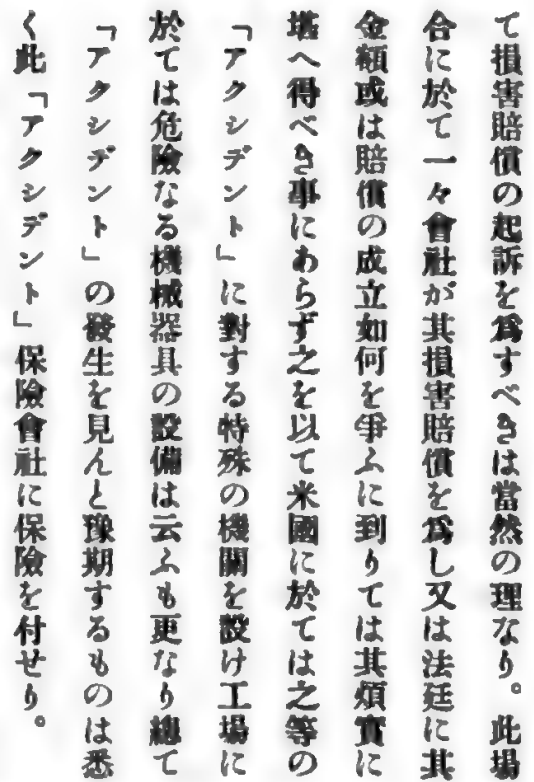 て損害賠償の起訴を爲すべきは當然の理なり。此塲
合に於て一々會社が其損害賠償を爲し又は法廷に其
金額或は賠償の成立如何を爭ふに到りては其煩實に
堪へ得べき事にあらず之を以て米國に於ては之等の
「アクシデント」に對する特殊の機關を設け工塲に
於ては危險なる機械器具の設備は云ふも更なり總て
「アクシデント」の發生を見んと豫期するものは悉
く此「アクシデント」保險會社に保險を付せり。